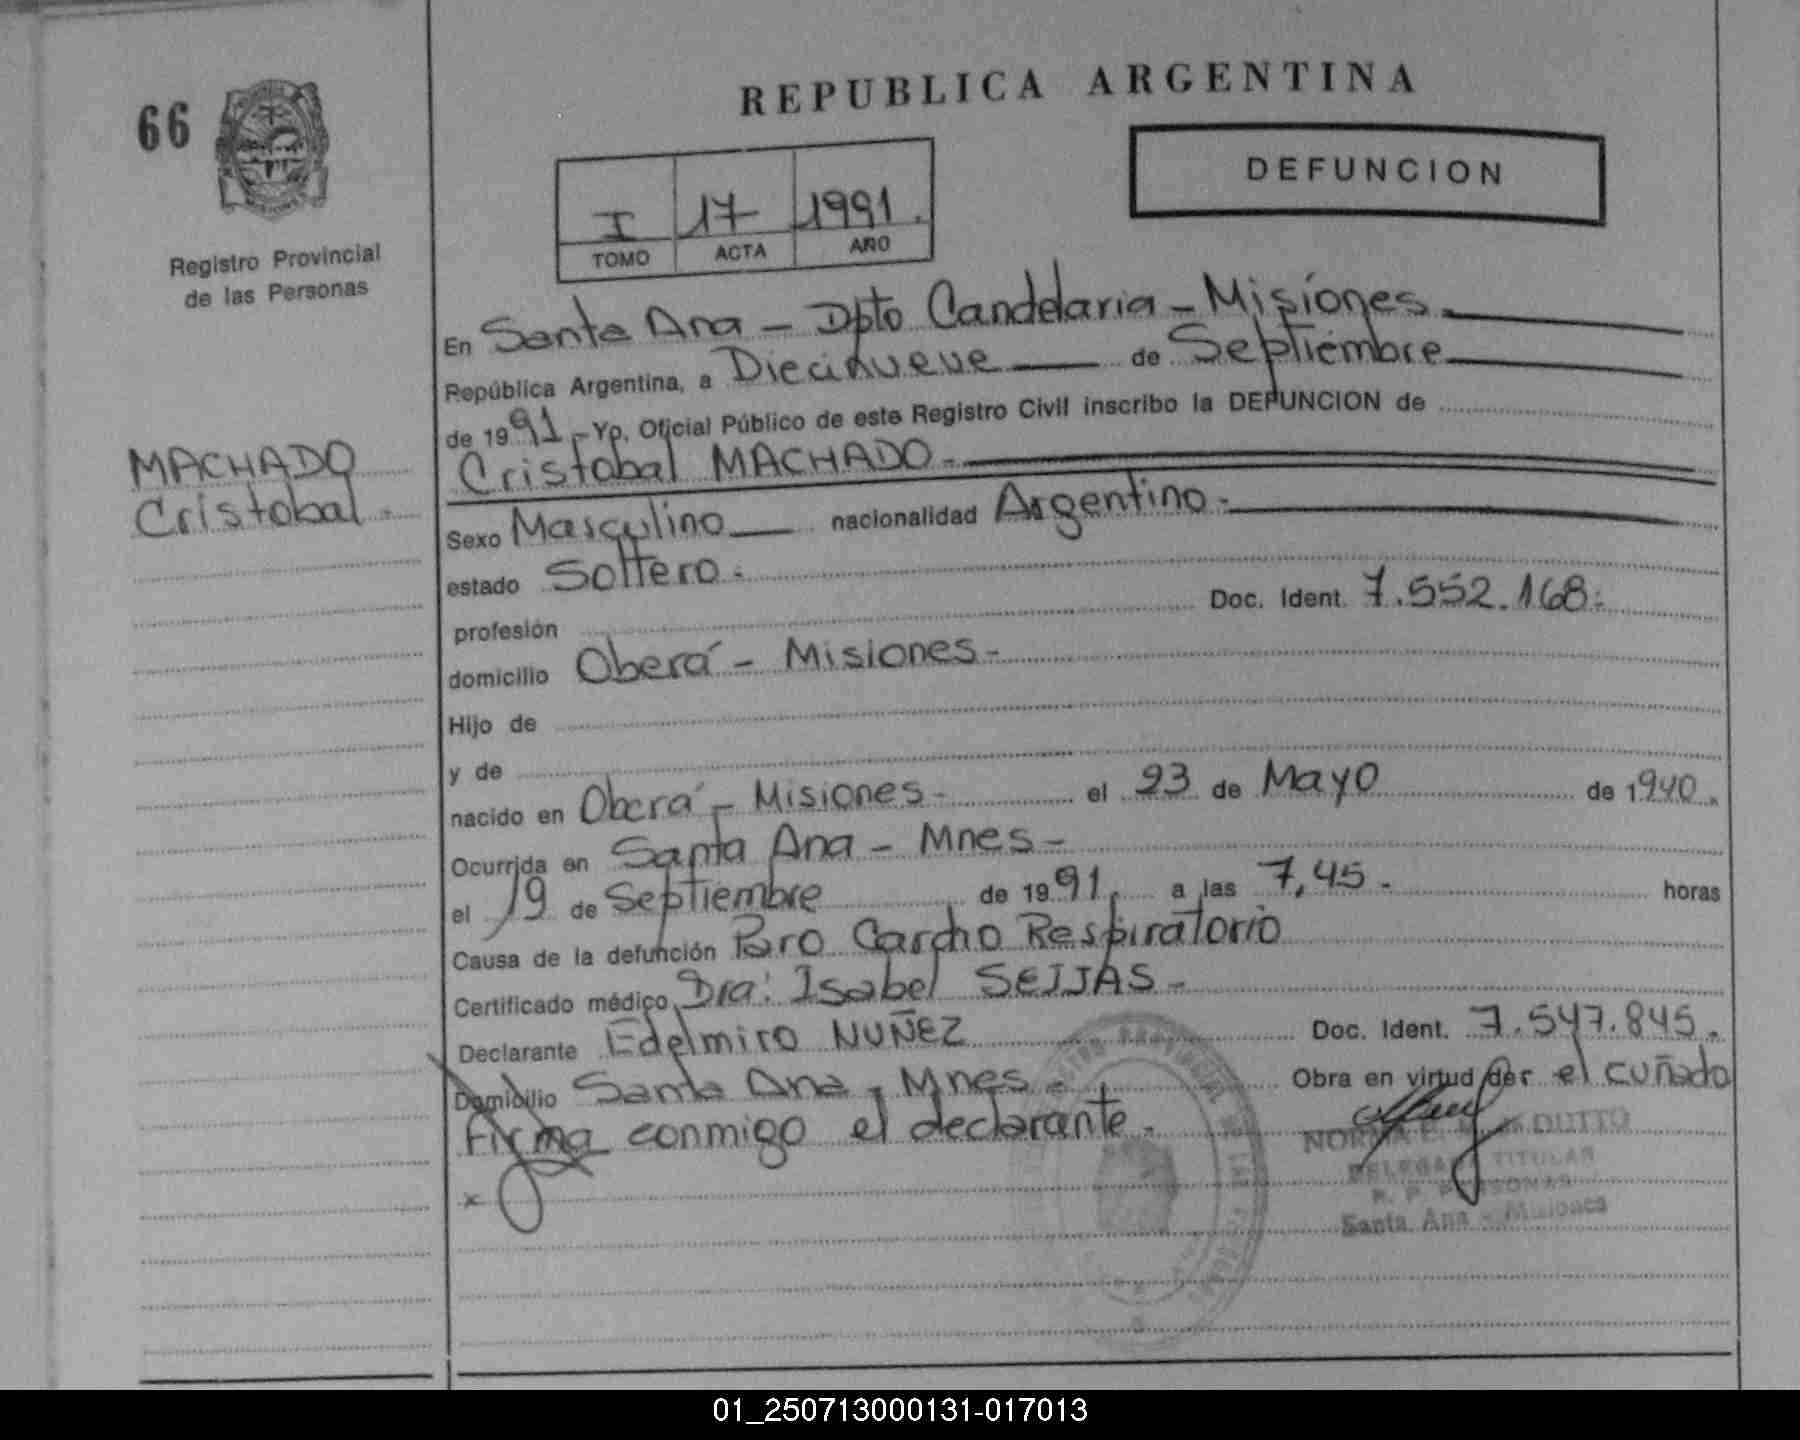 66
REPUBLICA ARGENTINA
DEFUNCION
I 17 1991.
TOMO ACTA AÑO
Registro Provincial
de las Personas
MACHADO
Cristobal.
En Santa Ana - Dpto Candelaria - Misiones
República Argentina, a Diecinueve de Septiembre
de 1991.- Yo, Oficial Público de este Registro Civil inscribo la DEFUNCION de
Cristobal MACHADO.-
Sexo Masculino nacionalidad Argentino.-
estado Soltero.
profesión Doc. Ident. 7.552.168.
domicilio Oberá - Misiones-
Hijo de
y de
nacido en Oberá - Misiones- el 23 de Mayo de 1940.
Ocurrida en Santa Ana - Mnes-
el 19 de Septiembre de 1991. a las 7,45. horas
Causa de la defunción Paro Cardio Respiratorio
Certificado médico Dra: Isabel SEIJAS-
Declarante Edelmiro NUÑEZ Doc. Ident. 7.547.845.
Domicilio Santa Ana - Mnes- Obra en virtud der el cuñado
Firma conmigo el declarante.
x
TITULAR
Santa Ana - Misiones
01_250713000131-017013